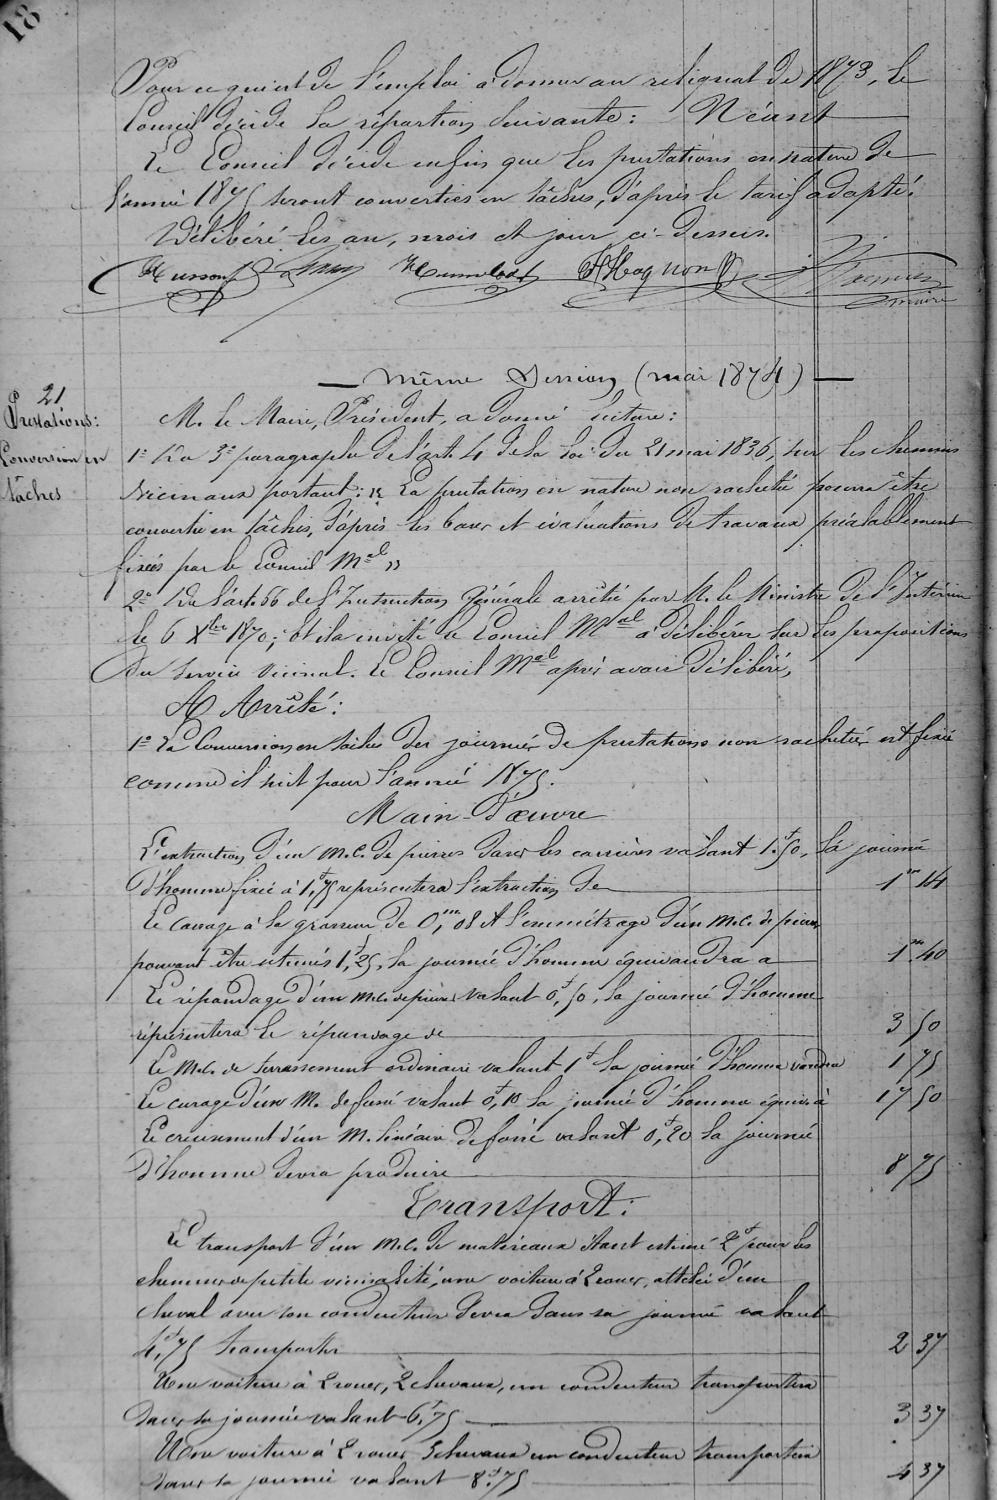 18
Pour ce qui est de l'emploi à donner au reliquat de 1873, le
Conseil décide la répartion suivante : Néant
Le Conseil décide enfin que les prestations en nature de
l'année 1875 seront converties en tâches, d'après le tarif adopté.
Délibéré les an, mois et jour ci-dessus.
maire
— Même Session (mai 1874) —
21
Prestations :
Conversion en
tâches
M. le Maire, Président, a donné lecture :
1° Du 3e paragraphe de l'art. 4 de la loi du 21 mai 1836, sur les chemins
vicinaux portant : « La prestation en nature non rachetée pourra être
convertie en tâches, d'après les bases et évaluations de travaux préalablement
fixées par le Conseil Mal »
2° De l'art. 66 de l'Instruction Générale arrêtée par M. le Ministre de l'Intérieur
le 6 Xbre 1870 ; et il a invité le Conseil Mal à délibérer sur les propositions
du service vicinal. Le Conseil Mal après avoir délibéré,
A Arrêté :
1° La Conversion en tâches des journées de prestations non rachetées est fixée
comme il suit pour l'année 1875.
Main-d'œuvre
L'extraction d'un M.C. de pierres dans les carrières valant 1f.50, la journée
d'homme fixée à 1f,75 représentera l'extraction de 1m 14
Le cassage à la grosseur de 0,m08 et l'emmétrage d'un M.C. de pierres
pouvant être estimés 1f,25, la journée d'homme équivaudra a 1m 40
Le répandage d'un M.C. de pierres valant 0f,50, la journée d'homme
représentera le répandage de 3 50
Le M.C. de terrassement ordinaire valant 1f la journée d'homme vaudra 1 75
Le curage d'un M. de fossé valant 0f,10 la journée d'homme équiv. à 17 50
Le creusement d'un M. linéaire de fossé valant 0f,20 la journée
d'homme devra produire 8 75
Transport :
Le transport d'un M.C. de matériaux étant estimé 2f pour les
chemins de petite vicinalité, une voiture à 2 roues, attelée d'un
cheval avec son conducteur devra dans sa journée valant
4f,75 transporter 2 37
Une voiture à 2 roues, 2 chevaux, un conducteur transportera
dans sa journée valant 6f,75 3 37
Une voiture à 2 roues 3 chevaux un conducteur transportera
dans sa journée valant 8f.75 4 37